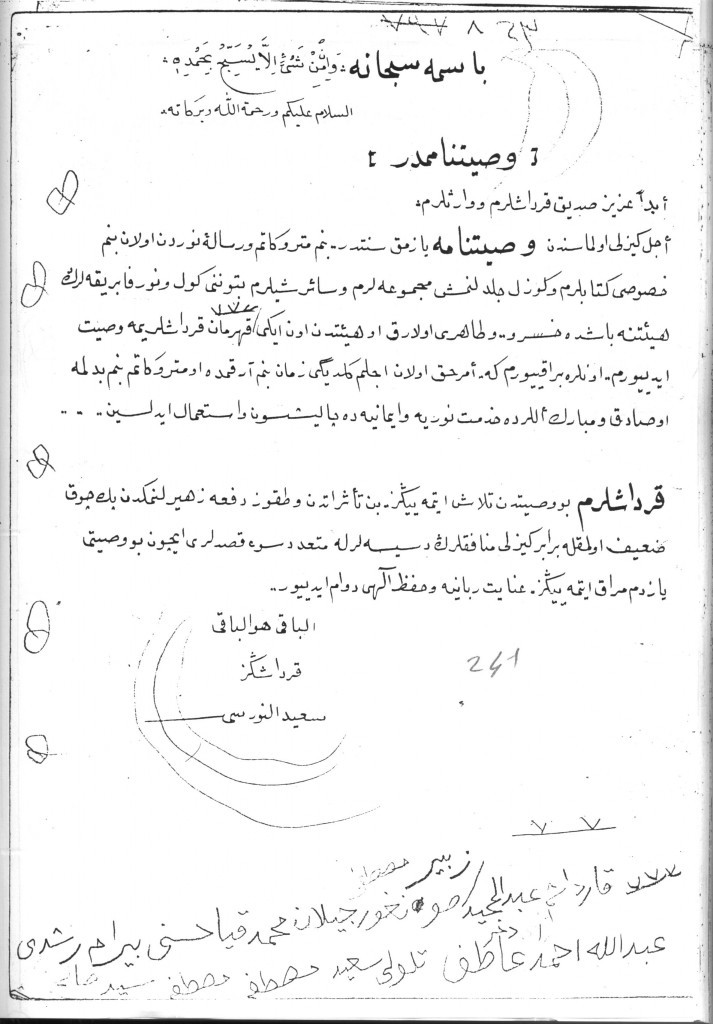 باسمه سبحانه ٭ وَاِنْ مِنْ شَىْءٍ اِلَّا يُسَبِّحُ بِحَمْدِهِ ٭
السلام عليكم ورحمة الله وبركاته
وصيتنامه‌مدر
أبدآ عزيز صديق قرداشلرم ووارثلرم
أجل كيزلى اولماسندن وصيتنامه يازمق سنتدر. بنم متروكاتم ورسالهٔ نوردن اولان بنم
خصوصى كتابلرم وكوزل جلدلنمش مجموعه لرم وسائر شيلرم بتوننى كول ونور فابريقه لرك
هيئتنه باشده خسرو.. وطاهرى اولارق او هيئتدن اون ايكى قهرمان قرداشلريمه وصيت
ايدييورم.. اونلره براقييورم كه. أمر حق اولان اجلم كلديگى زمان بنم آرقمده او متروكاتم بنم بدلمه
او صادق و مبارك أللرده خدمت نوريه وايمانيه ده چاليشسون واستعمال ايدلسين . . . .
قرداشلرم بو وصيتدن تلاش ايتمه ييڭز. بن تأثراتدن وطقوز دفعه زهيرلنمكدن پك چوق
ضعيف اولمقله برابر كيزلى منافقلرك دسيسه لرله متعدد سوء قصدلرى ايچون بو وصيتى
يازدم مراق ايتمه ييڭز. عنايت ربانيه وحفظ آلهى دوام ايدييور..
الباقى هو الباقى
قرداشڭز
241
سعيد النورسى
٧ ٧
زبير مصطفى
٧٧٧ قارداشم عبدالمجيد جيلان محمد قيا حسنى بيرام رشدى
عبدالله احمد عاطف سعيد مصطفى مصطفى سيد صالح